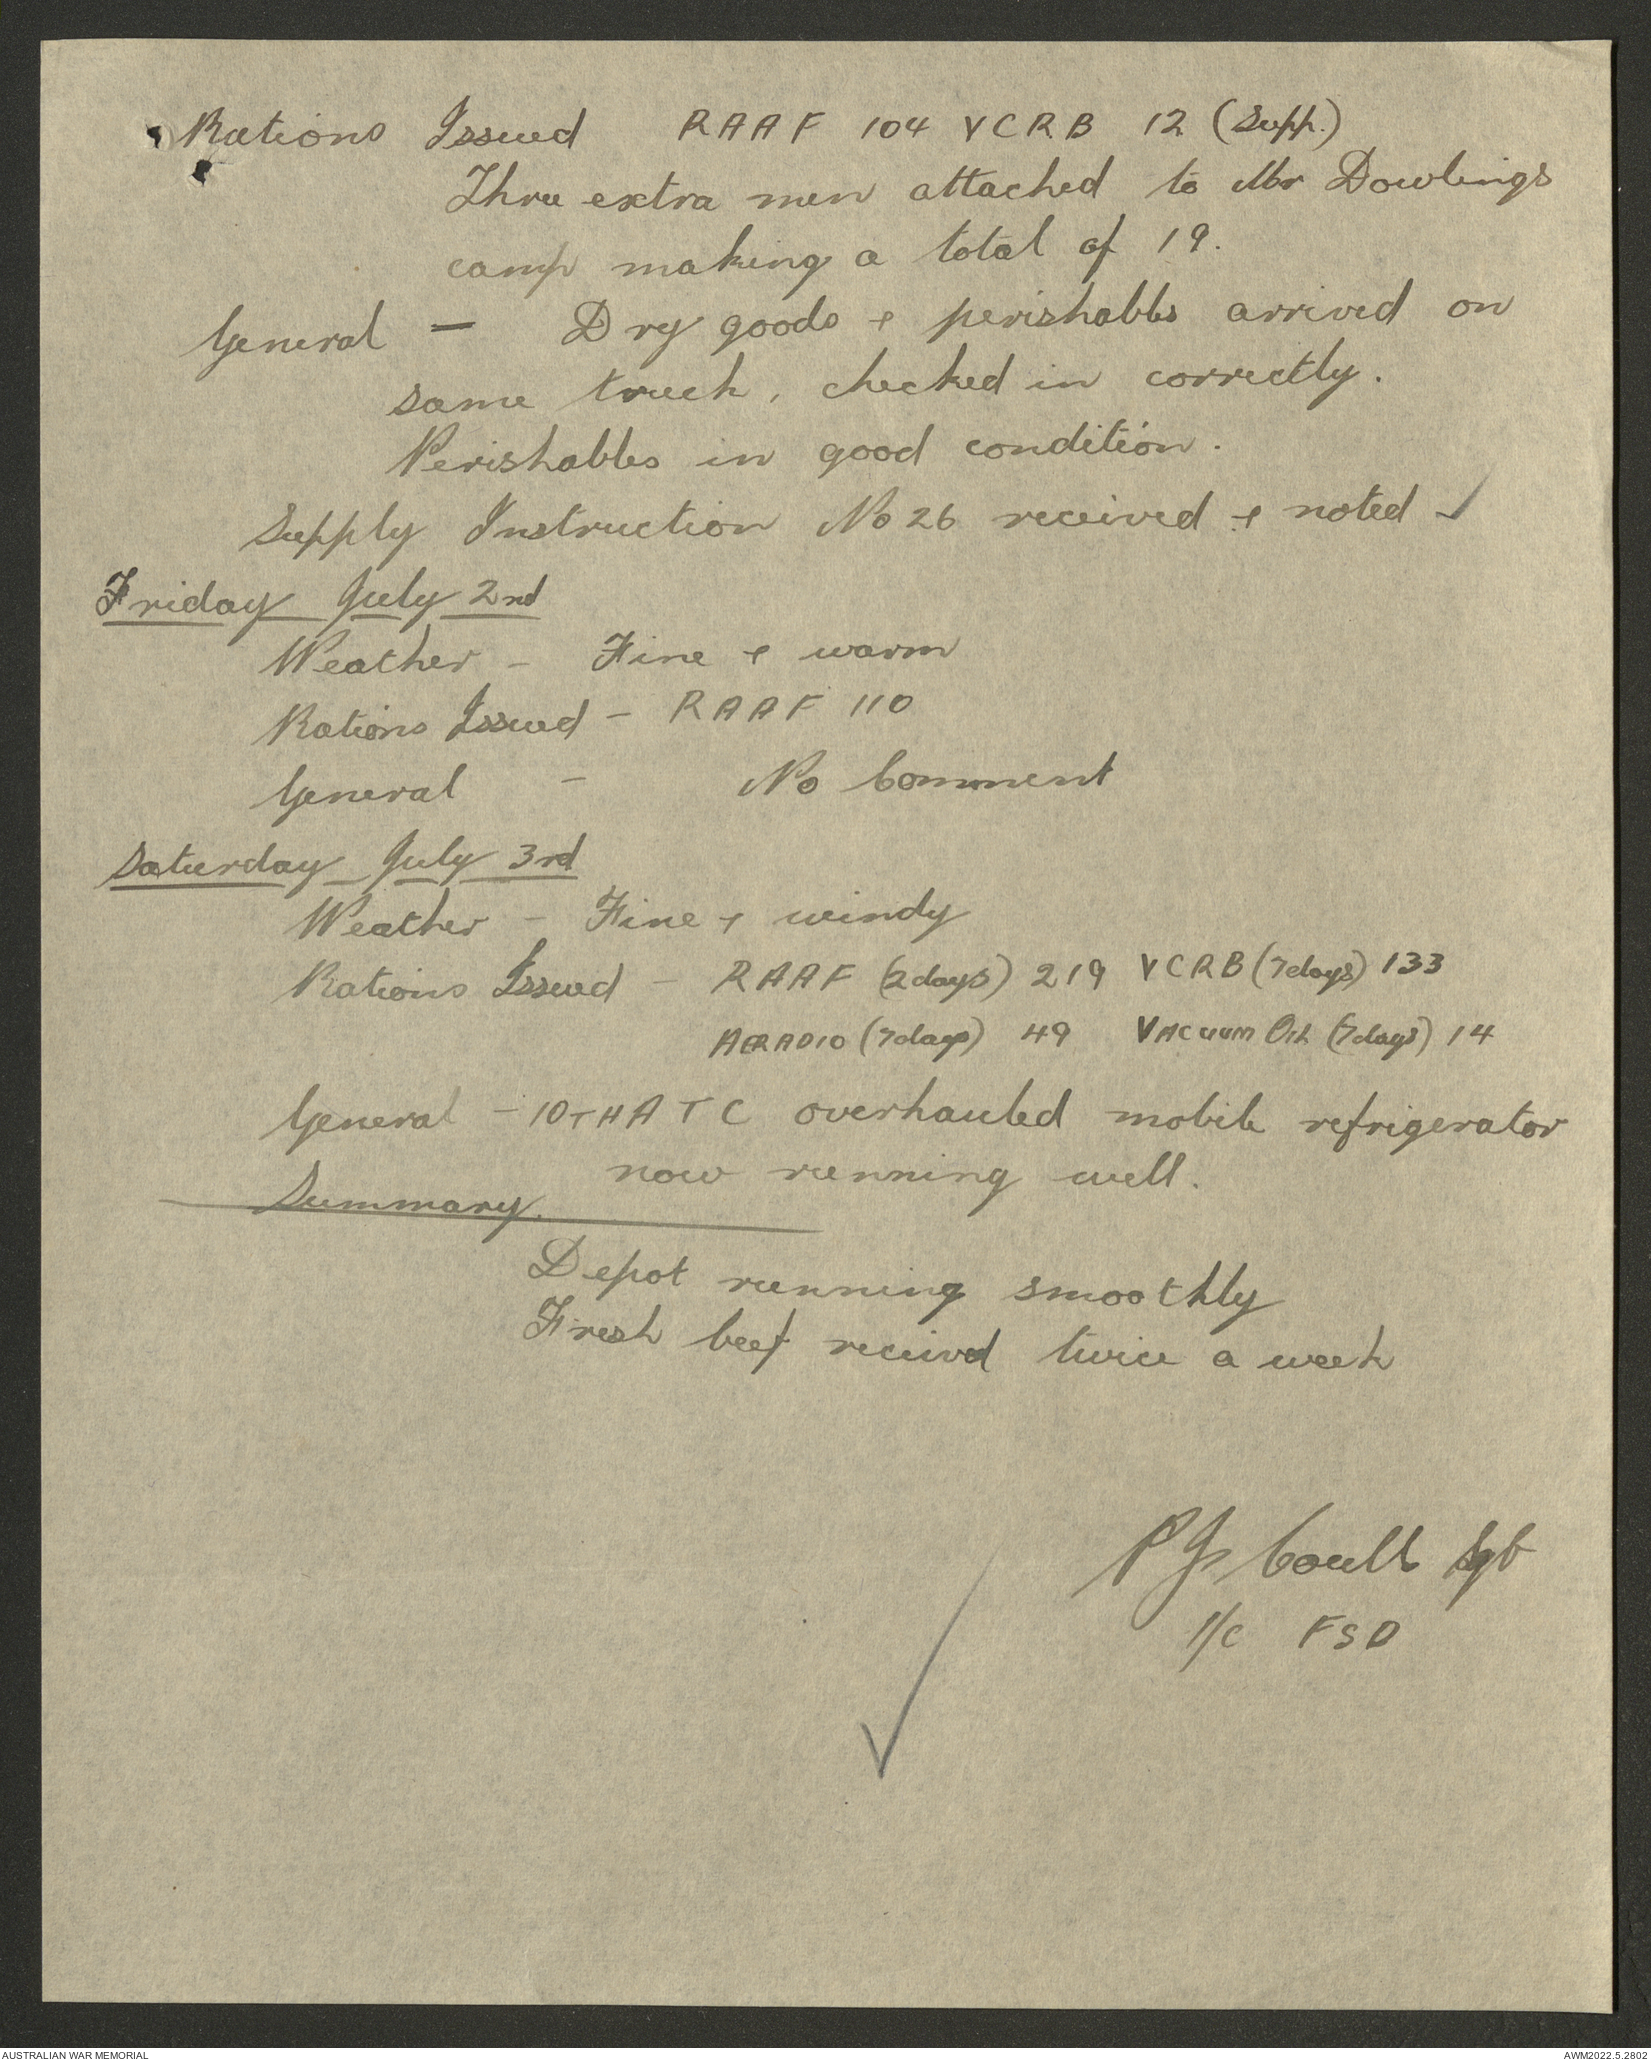 Rations Issued RAAF 104 VCRB 12 (Supp.)
Three extra men attached to Mr Dowlings
camp making a total of 19.
General — Dry goods & perishables arrived on
same truck, checked in correctly.
Perishables in good condition.
Supply Instruction No 26 received & noted ✓
Friday July 2nd
Weather - Fine & warm
Rations Issued - RAAF 110
General - No Comment
Saturday July 3rd
Weather - Fine & windy
Rations Issued - RAAF (2days) 219 VCRB (7days) 133
AERADIO (7days) 49 VACUUM OIL (7days) 14
General - 10TH A T C overhauled mobile refrigerator
now running well.
Summary.
Depot running smoothly
Fresh beef received twice a week
Sgt
I/C FSD
✓
AUSTRALIAN WAR MEMORIAL
AWM2022.5.2802